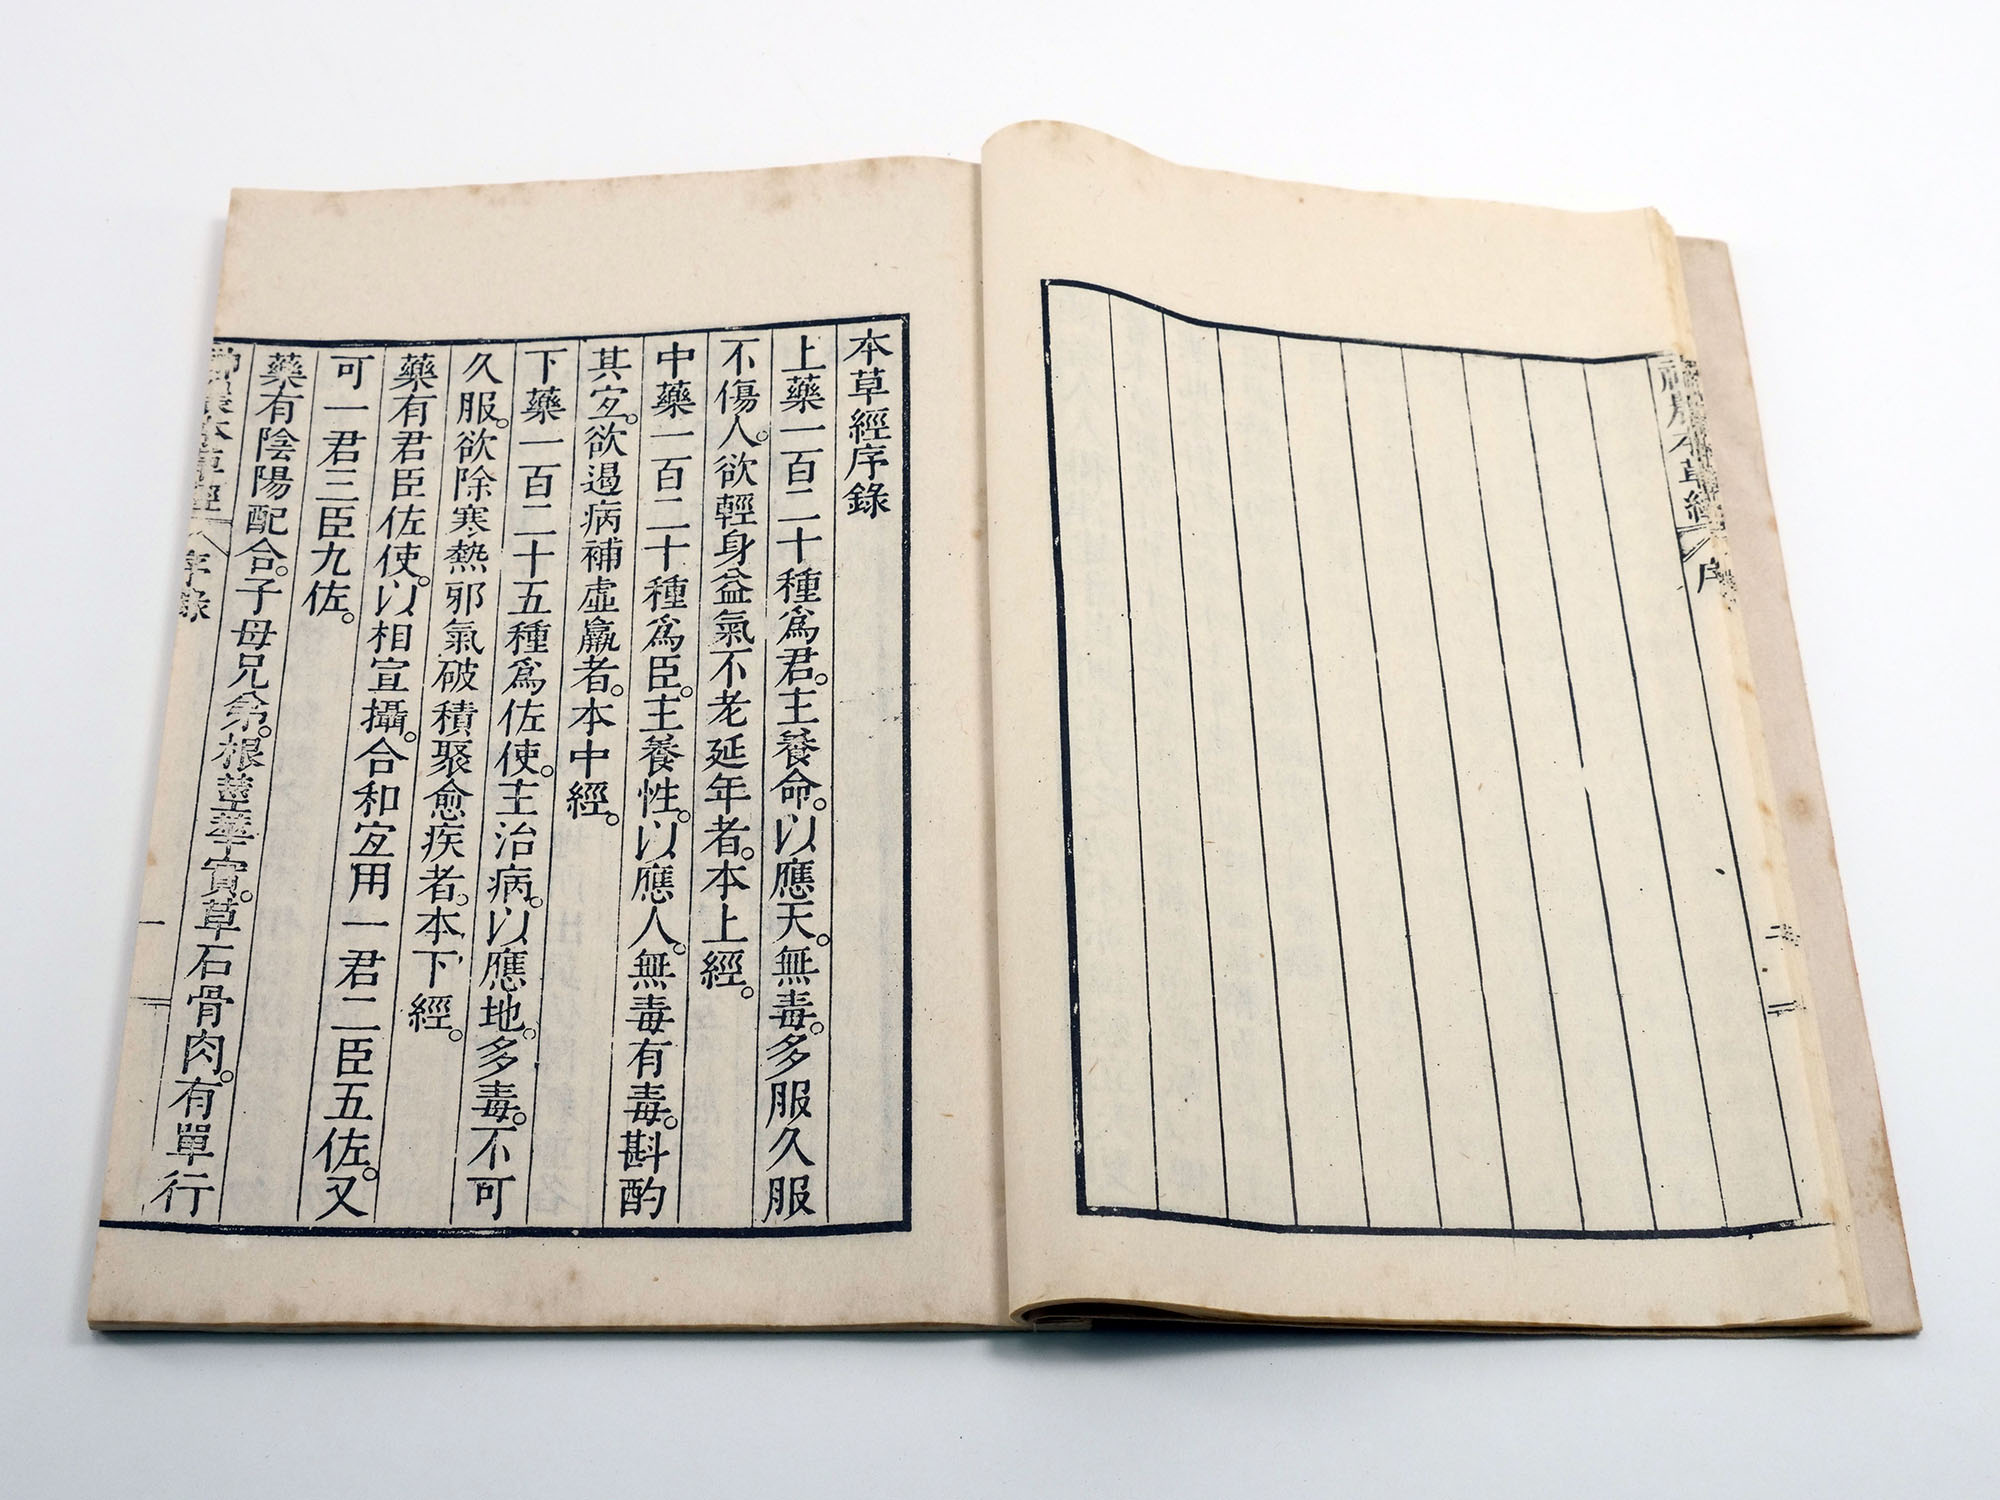 神農本草經
序
本草經序錄
上藥一百二十種爲君。主養命。以應天。無毒。多服久服
不傷人。欲輕身益氣不老延年者。本上經。
中藥一百二十種爲臣。主養性。以應人。無毒有毒。斟酌
其宐。欲遏病補虛羸者。本中經。
下藥一百二十五種爲佐使。主治病。以應地。多毒。不可
久服。欲除寒熱邪氣破積聚愈疾者。本下經。
藥有君臣佐使。以相宣攝。合和宐用一君二臣五佐。又
可一君三臣九佐。
藥有陰陽配合。子母兄弟。根莖華實。草石骨肉。有單行
神農本草經
序錄
一